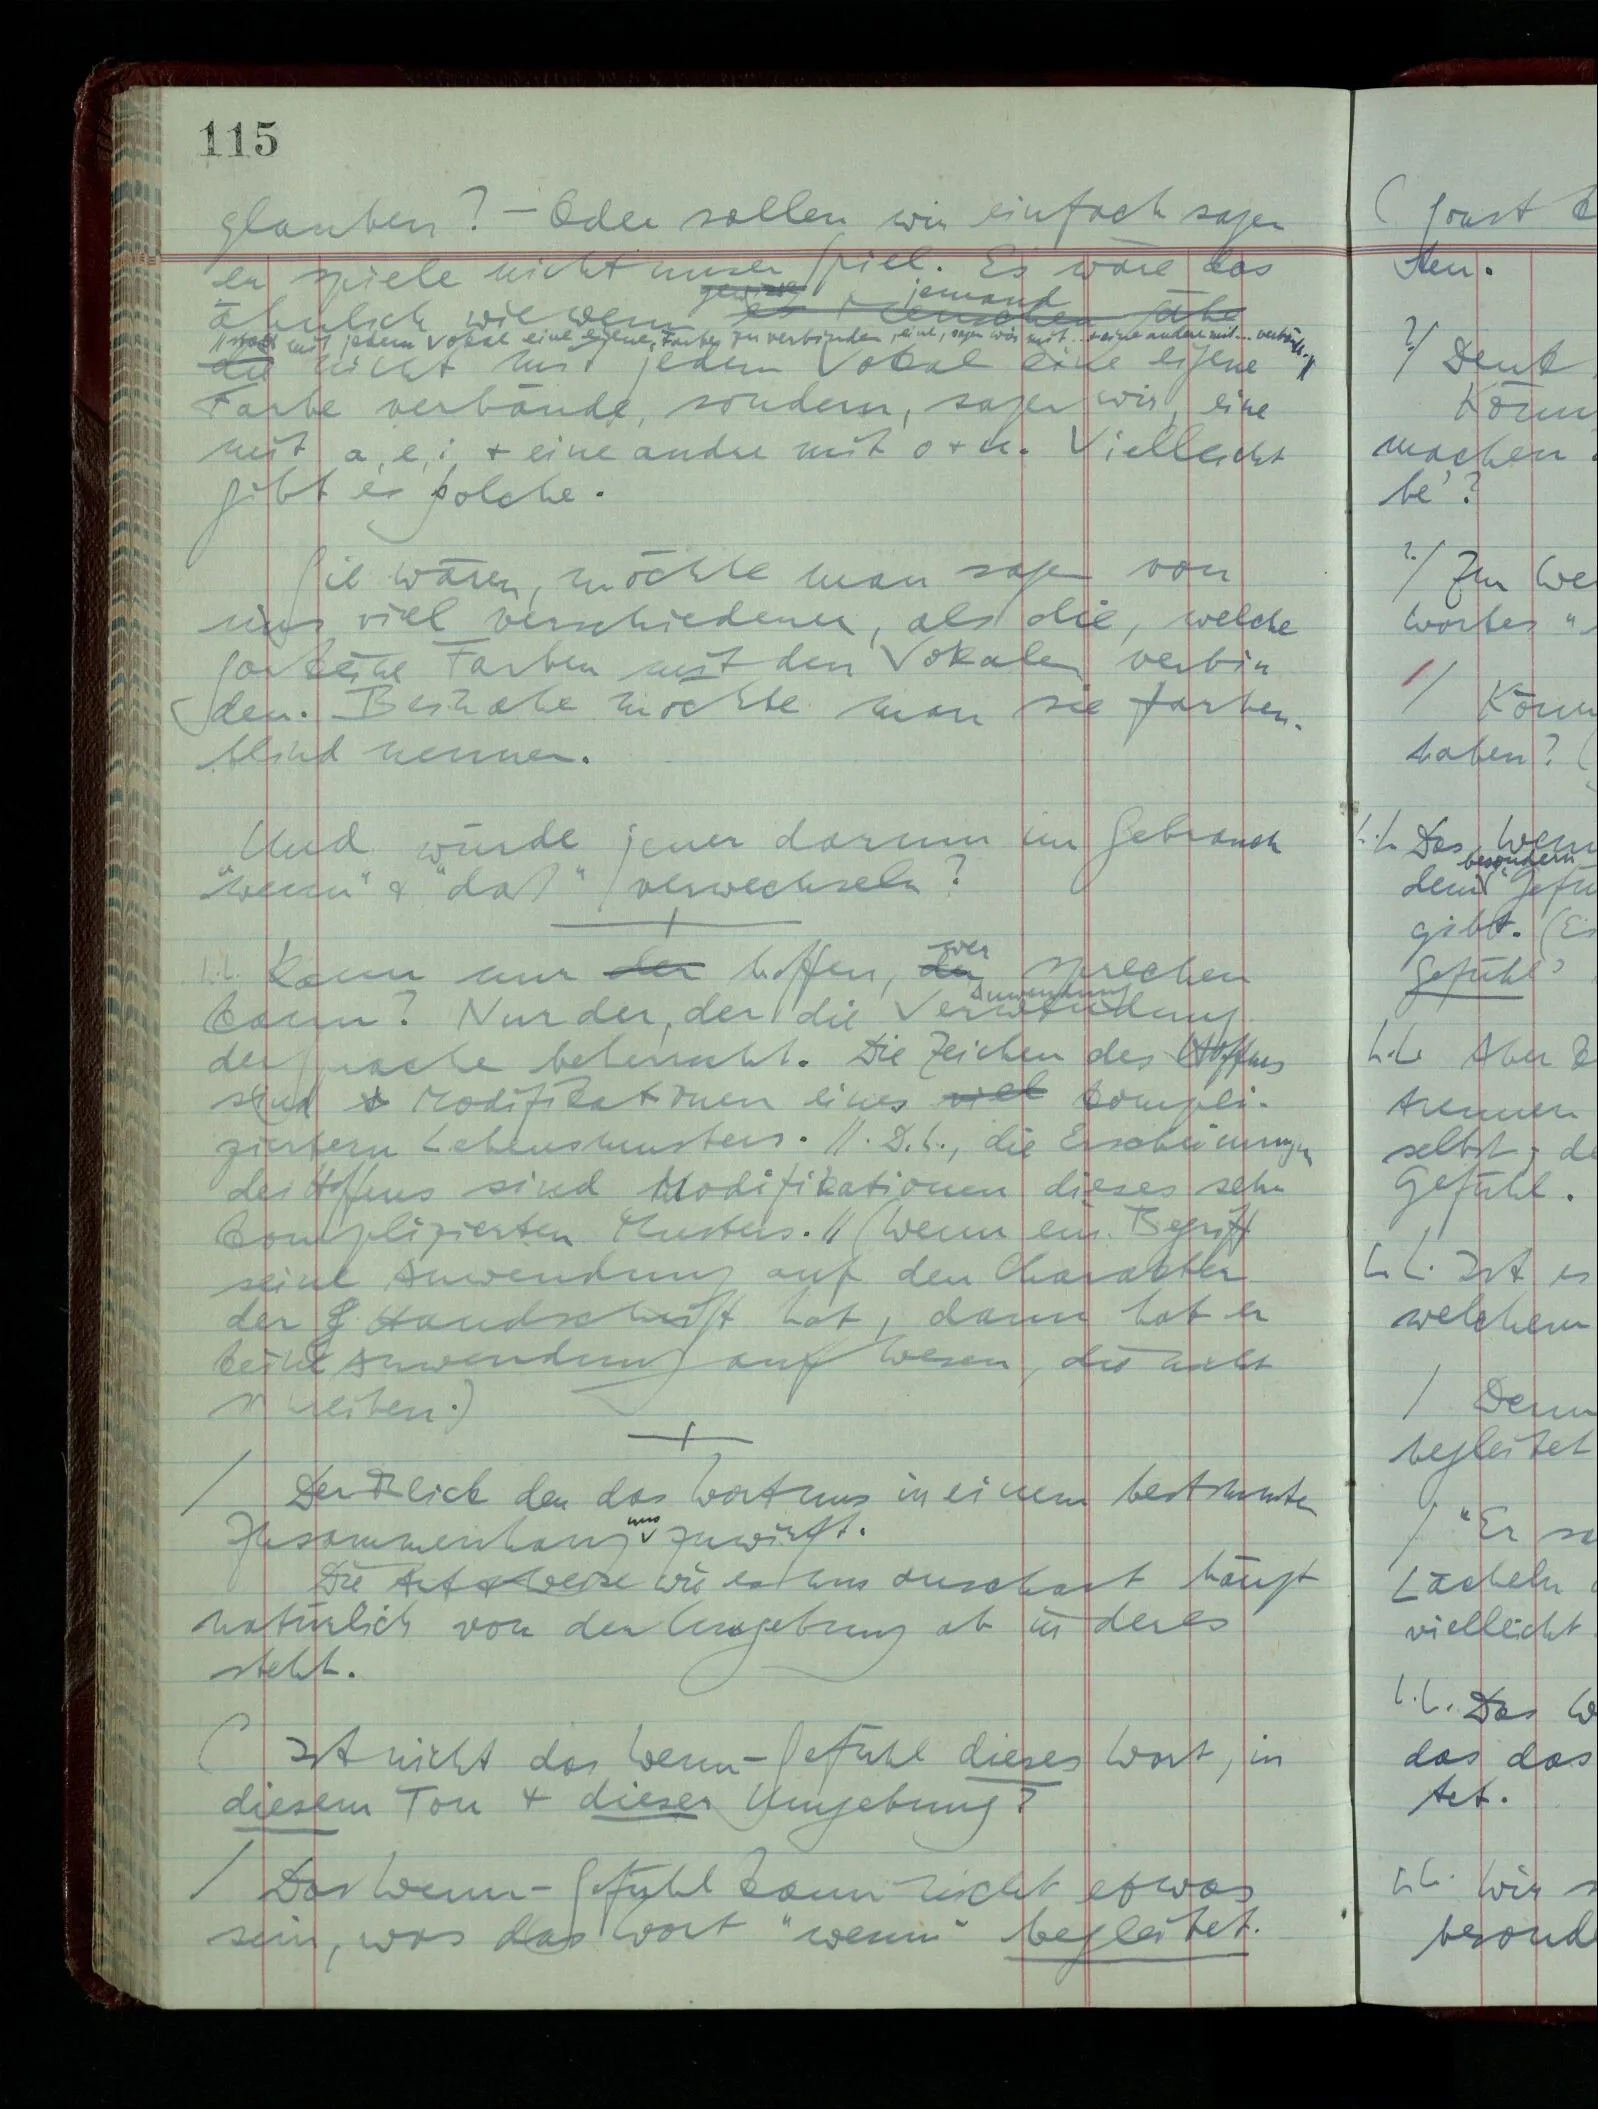 115
glauben? – Oder sollen wir einfach sagen
er spiele nicht unser Spiel. Es wäre das
gewisse jemand
ähnlich wie wenn es Menschen gäbe
// statt mit jedem Vokal eine eigene Farbe zu verbinden, eine, sagen wir mit … + eine andere mit … verbände //
die nicht mit jedem Vokal eine eigene
Farbe verbände, sondern, sagen wir, eine
mit a, e, i, + eine andre mit o + u. Vielleicht
gibt es solche.
Sie wären, möchte man sagen von
uns viel verschiedener, als die, welche
gar keine Farben mit den Vokalen verbin
den. Beinahe möchte man sie farben-
blind nennen.
Und würde jener darum im Gebrauch
"wenn" & "daß" verwechseln?
wer
Kann nur der hoffen, der sprechen
Anwendung
kann? Nur der, der die Verwendung
der Sprache beherrscht. Die Zeichen des Hoffens
sind Modifikationen eines viel kompli-
zierten Lebensmusters. // D.h., die Erscheinungen
des Hoffens sind Modifikationen dieses sehr
komplizierten Musters. // (Wenn ein Begriff
seine Anwendung auf den Charakter
der Handschrift hat, dann hat er
keine Anwendung auf Wesen, die nicht
schreiben.)
/ Der Blick den das Wort uns in einem bestimmten
uns
Zusammenhang zuwirft.
Die Art & Weise wie es uns anschaut hängt
natürlich von der Umgebung ab in der es
steht.
( Ist nicht das Wenn-Gefühl dieses Wort, in
diesem Ton + dieser Umgebung?
/ Das Wenn-Gefühl kann nicht etwas
sein, was das Wort "wenn" begleitet.
?/ Denk
Könn
machen
be'?
?/ Zum We
Wortes "
/ Könn
haben? (
Das Wenn
besondern
dem "Gefü
gibt. (Es
Gefühl'
Aber
trennen
selbst; de
Gefühl.
Ist es
welchem
/ Denn
begleitet
/ "Er sa
Lächeln
vielleicht
Das W
das das
tet.
Wir s
besond